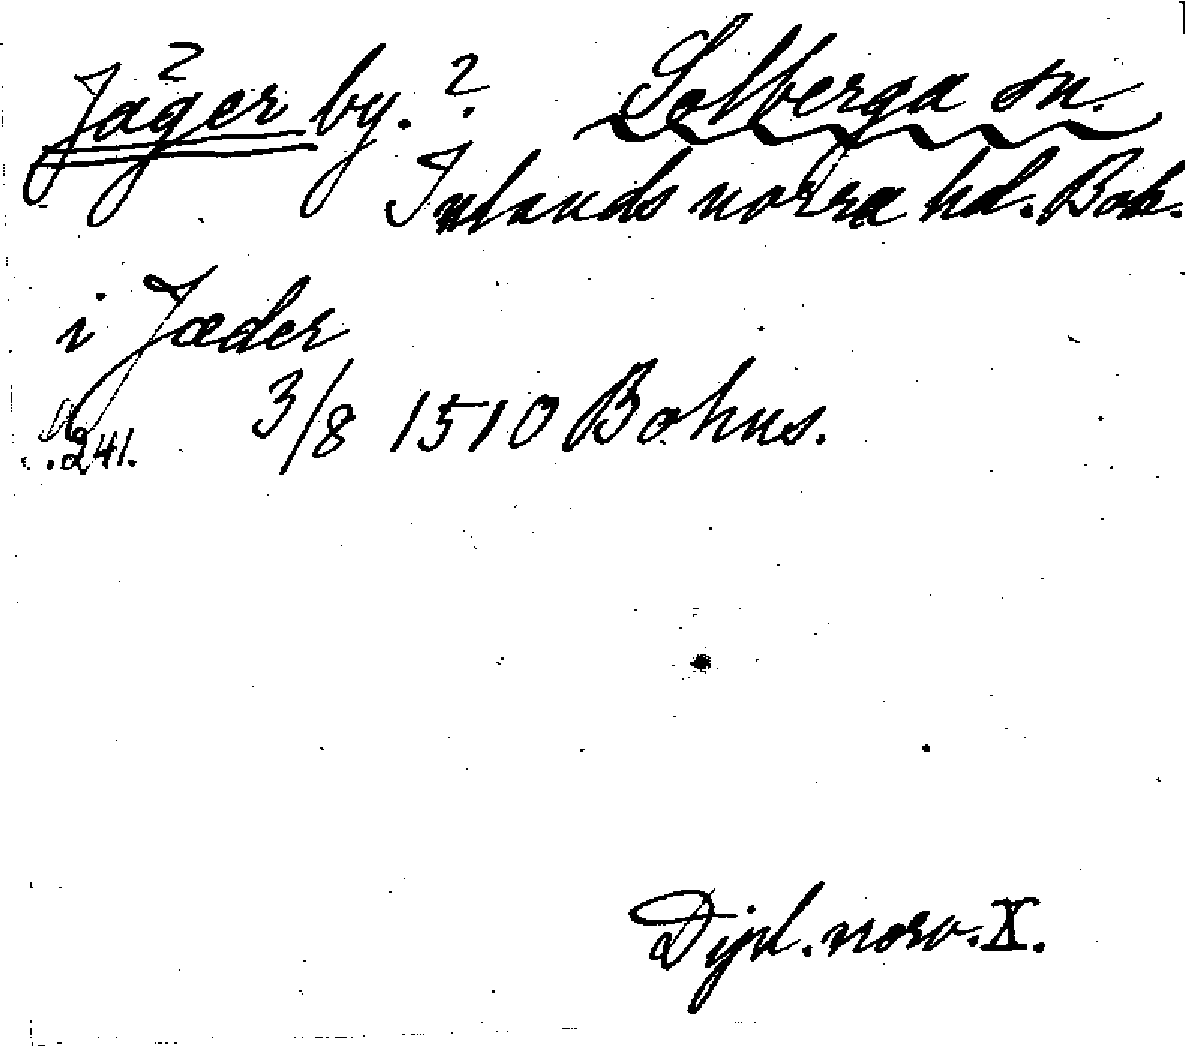 Jäger by. ? Solberga sn.
Inlands norra hd. Boh.
i Jæder
3/8 1510 Bohus.
. 241.
Dipl. norv. X.